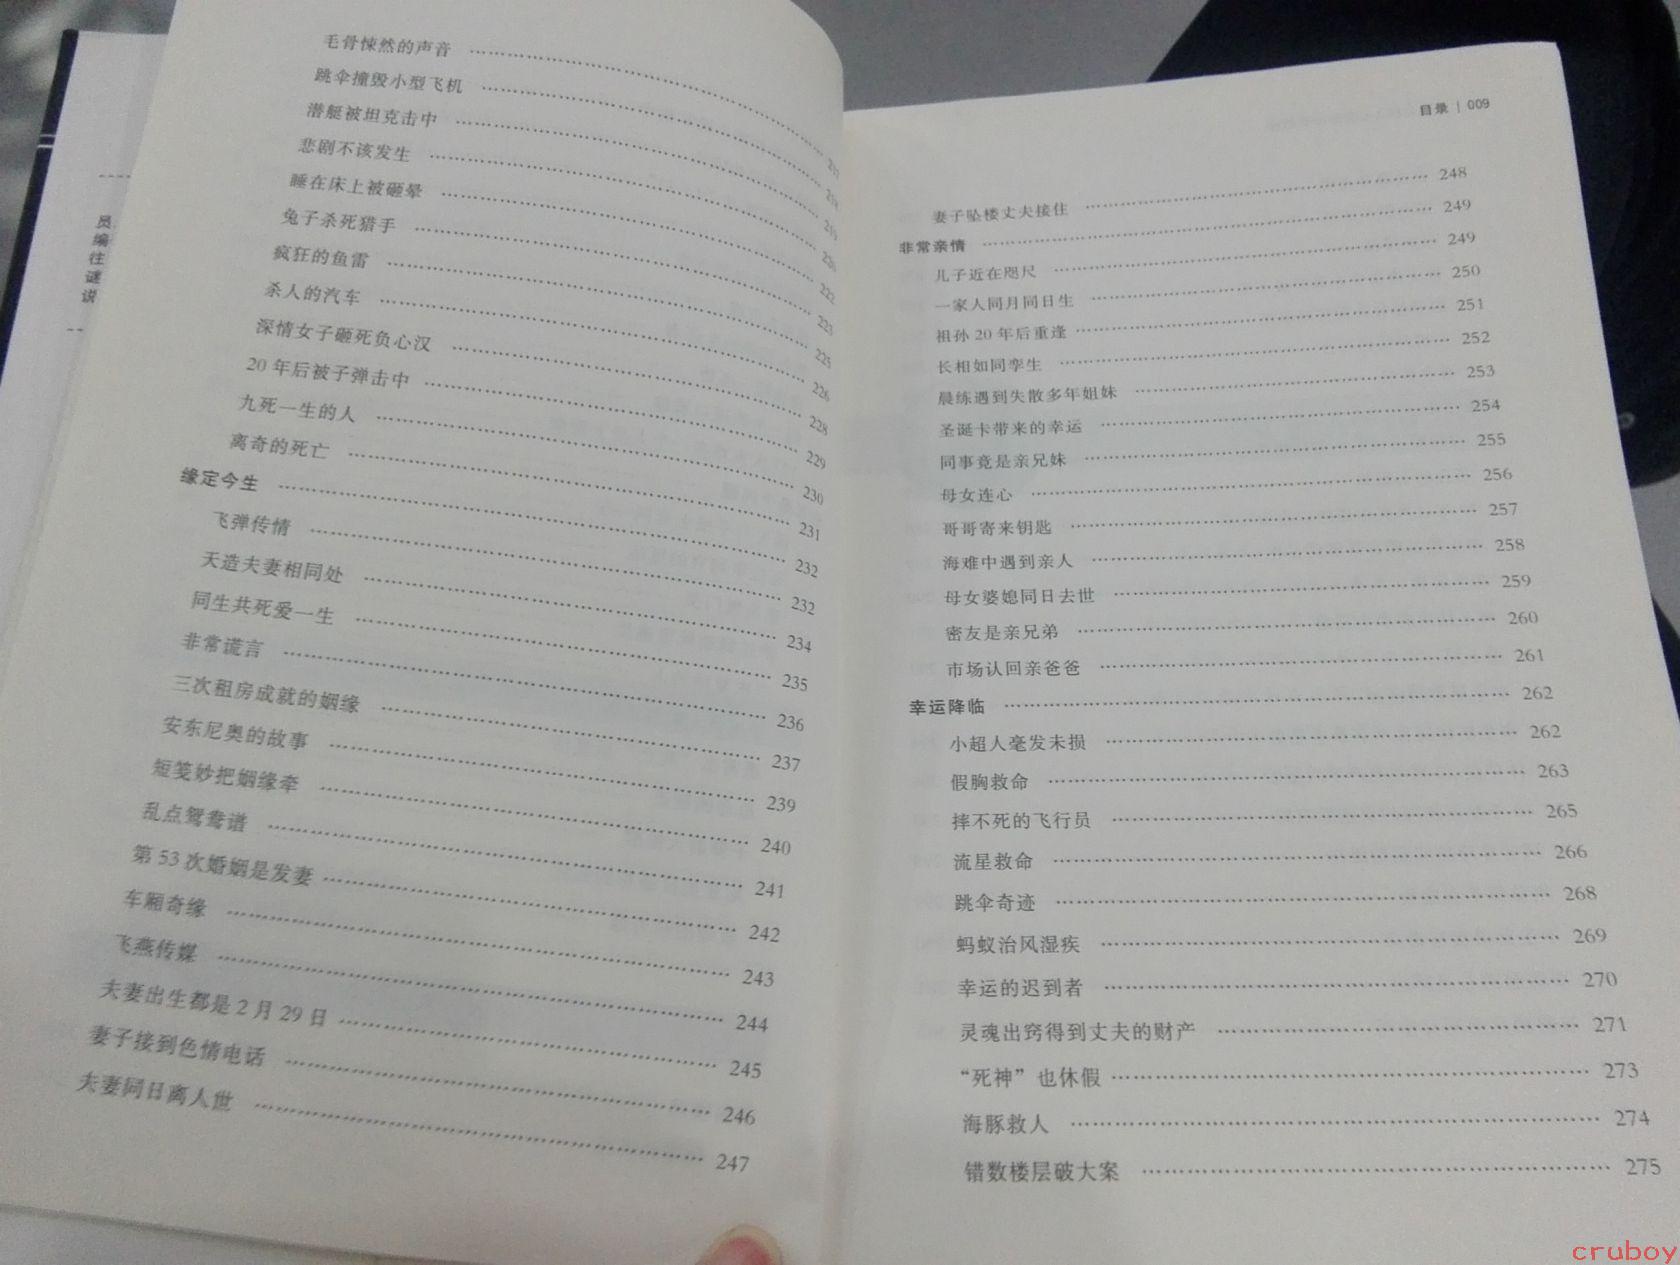 员
编
往
谜
说
毛骨悚然的声音 …… 217
跳伞撞毁小型飞机 …… 218
潜艇被坦克击中 …… 219
悲剧不该发生 …… 220
睡在床上被砸晕 …… 222
兔子杀死猎手 …… 223
疯狂的鱼雷 …… 225
杀人的汽车 …… 226
深情女子砸死负心汉 …… 228
20 年后被子弹击中 …… 229
九死一生的人 …… 230
离奇的死亡 …… 231
缘定今生 …… 232
飞弹传情 …… 232
天造夫妻相同处 …… 234
同生共死爱一生 …… 235
非常谎言 …… 236
三次租房成就的姻缘 …… 237
安东尼奥的故事 …… 239
短笺妙把姻缘牵 …… 240
乱点鸳鸯谱 …… 241
第 53 次婚姻是发妻 …… 242
车厢奇缘 …… 243
飞燕传媒 …… 244
夫妻出生都是 2 月 29 日 …… 245
妻子接到色情电话 …… 246
夫妻同日离人世 …… 247
目录 | 009
妻子坠楼丈夫接住 …… 248
非常亲情 …… 249
儿子近在咫尺 …… 249
一家人同月同日生 …… 250
祖孙 20 年后重逢 …… 251
长相如同孪生 …… 252
晨练遇到失散多年姐妹 …… 253
圣诞卡带来的幸运 …… 254
同事竟是亲兄妹 …… 255
母女连心 …… 256
哥哥寄来钥匙 …… 257
海难中遇到亲人 …… 258
母女婆媳同日去世 …… 259
密友是亲兄弟 …… 260
市场认回亲爸爸 …… 261
幸运降临 …… 262
小超人毫发未损 …… 262
假胸救命 …… 263
摔不死的飞行员 …… 265
流星救命 …… 266
跳伞奇迹 …… 268
蚂蚁治风湿疾 …… 269
幸运的迟到者 …… 270
灵魂出窍得到丈夫的财产 …… 271
“死神”也休假 …… 273
海豚救人 …… 274
错数楼层破大案 …… 275
cruboy